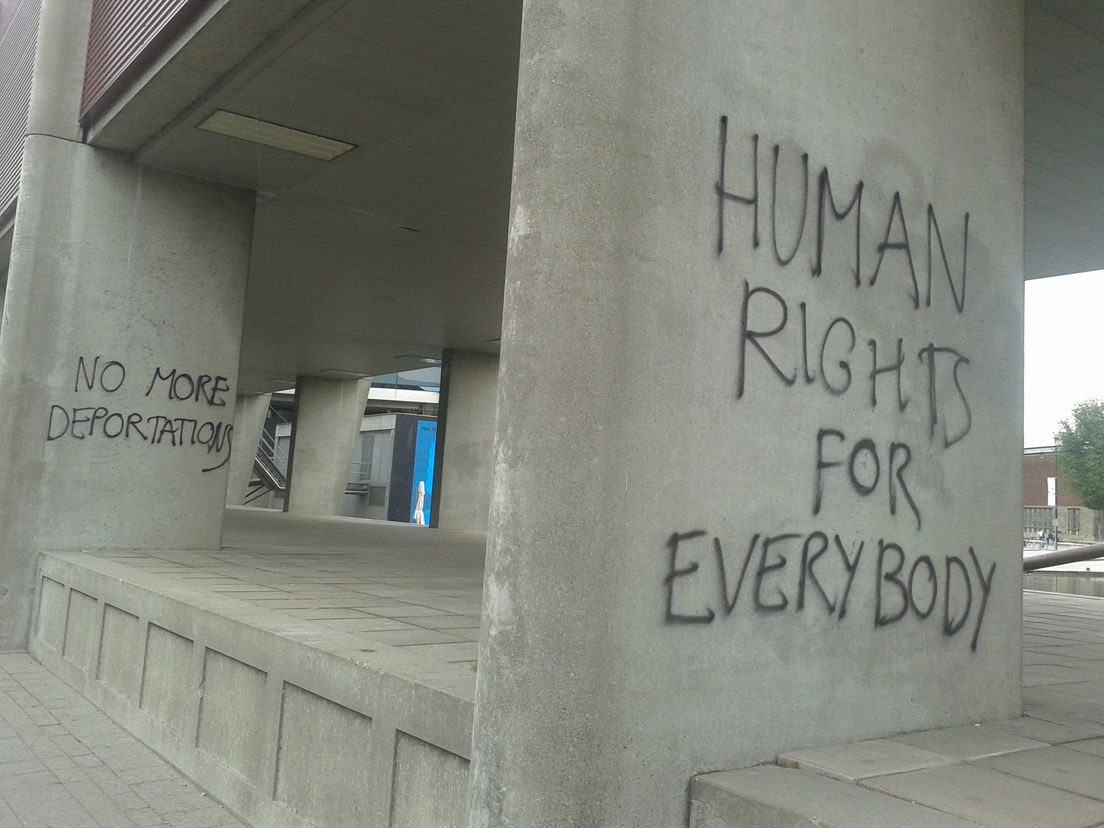 NO MORE
DEPORTATIONS
HUMAN
RIGHTS
FOR
EVERYBODY